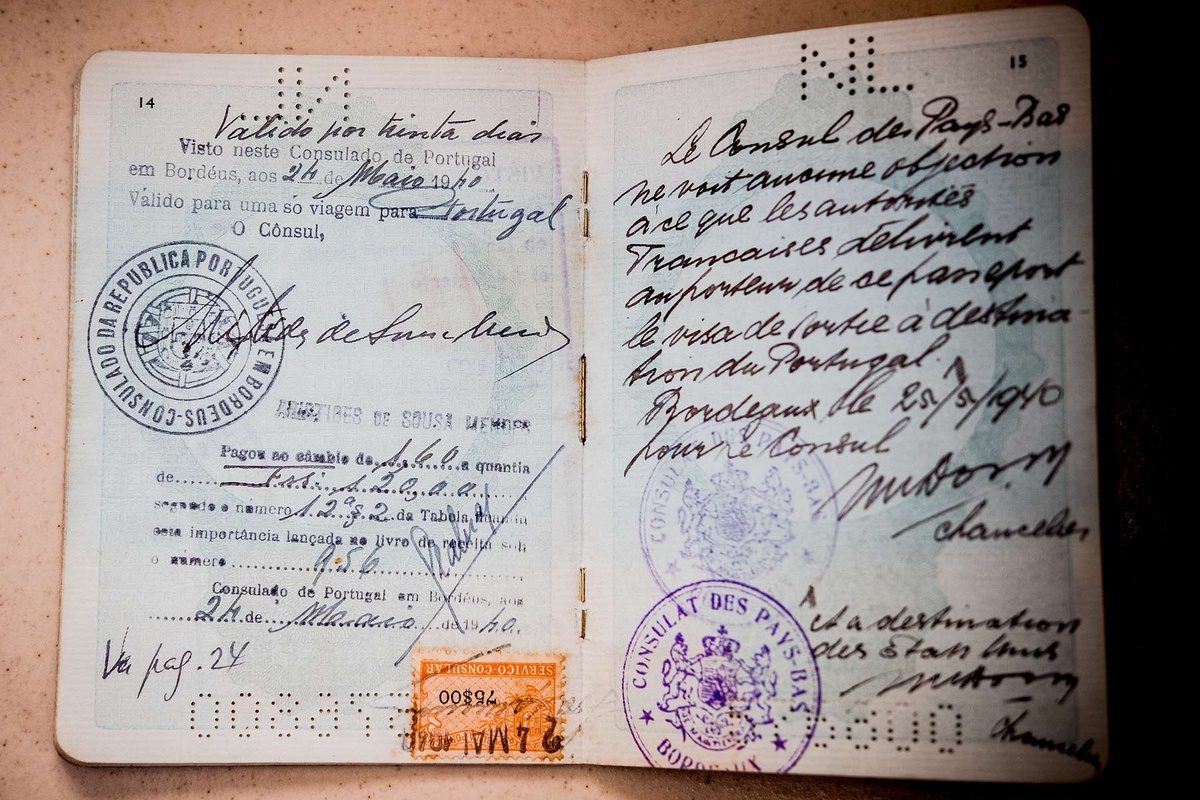 14
Válido por trinta dias
Visto neste Consulado de Portugal
em Bordéus, aos 24 de Maio 1940
Válido para uma só viagem para Portugal
O Cônsul,
CONSULADO DA REPUBLICA PORTUGUESA EM BORDEUS
Aristides de Sousa Mendes
ARISTIDES DE SOUSA MENDES
Pagou ao câmbio de 160 a quantia
de
segundo o número da Tabela
esta importância lançada no livro de receita sob
o número 956
Consulado de Portugal em Bordéus, aos
24 de Maio de 1940.
Va pag. 24
SERVIÇO CONSULAR
75$00
24 MAI 1940
NL
15
Le Consul des Pays-Bas
ne voit aucune objection
à ce que les autorités
Francaises délivrent
au porteur de ce passeport
le visa de sortie à destina-
tion du Portugal.
Bordeaux le 25/5/1940
pour le Consul
Chancelier
CONSULAT DES PAYS-BAS
et a destination
des Etats Unis
Chancelier
CONSULAT DES PAYS-BAS
BORDEAUX